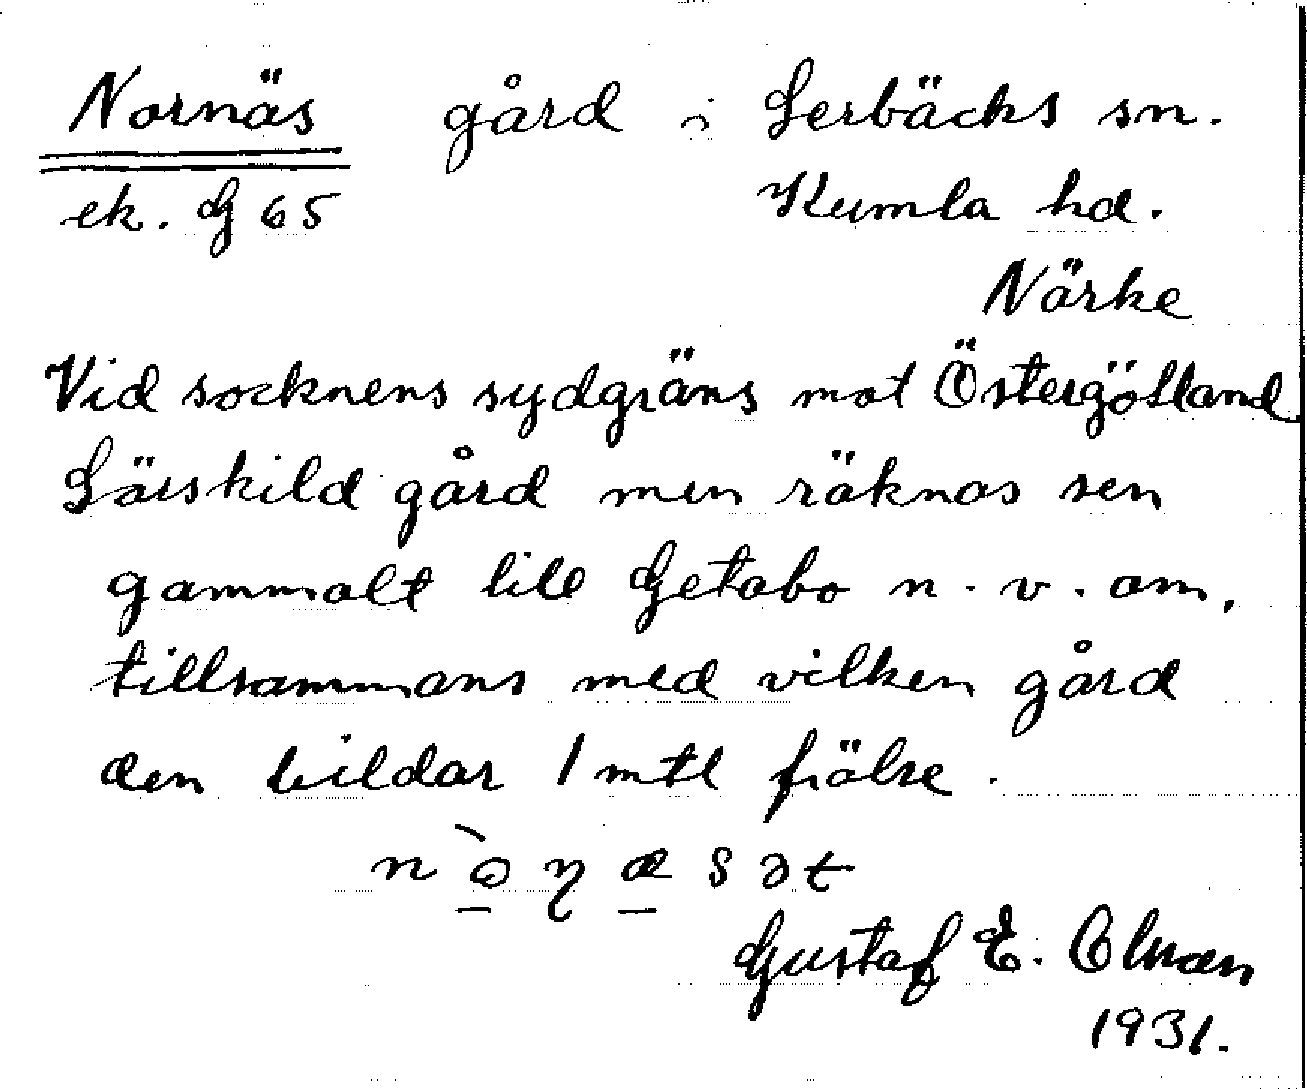 Nornäs gård i Lerbäcks sn.
ek. G 65 Kumla hd.
Närke
Vid socknens sydgräns mot Östergötland
Särskild gård men räknas sen
gammalt till Getabo n.v. om,
tillsammans med vilken gård
den bildar 1 mtl frälse.
Gustaf E. Olman
1931.